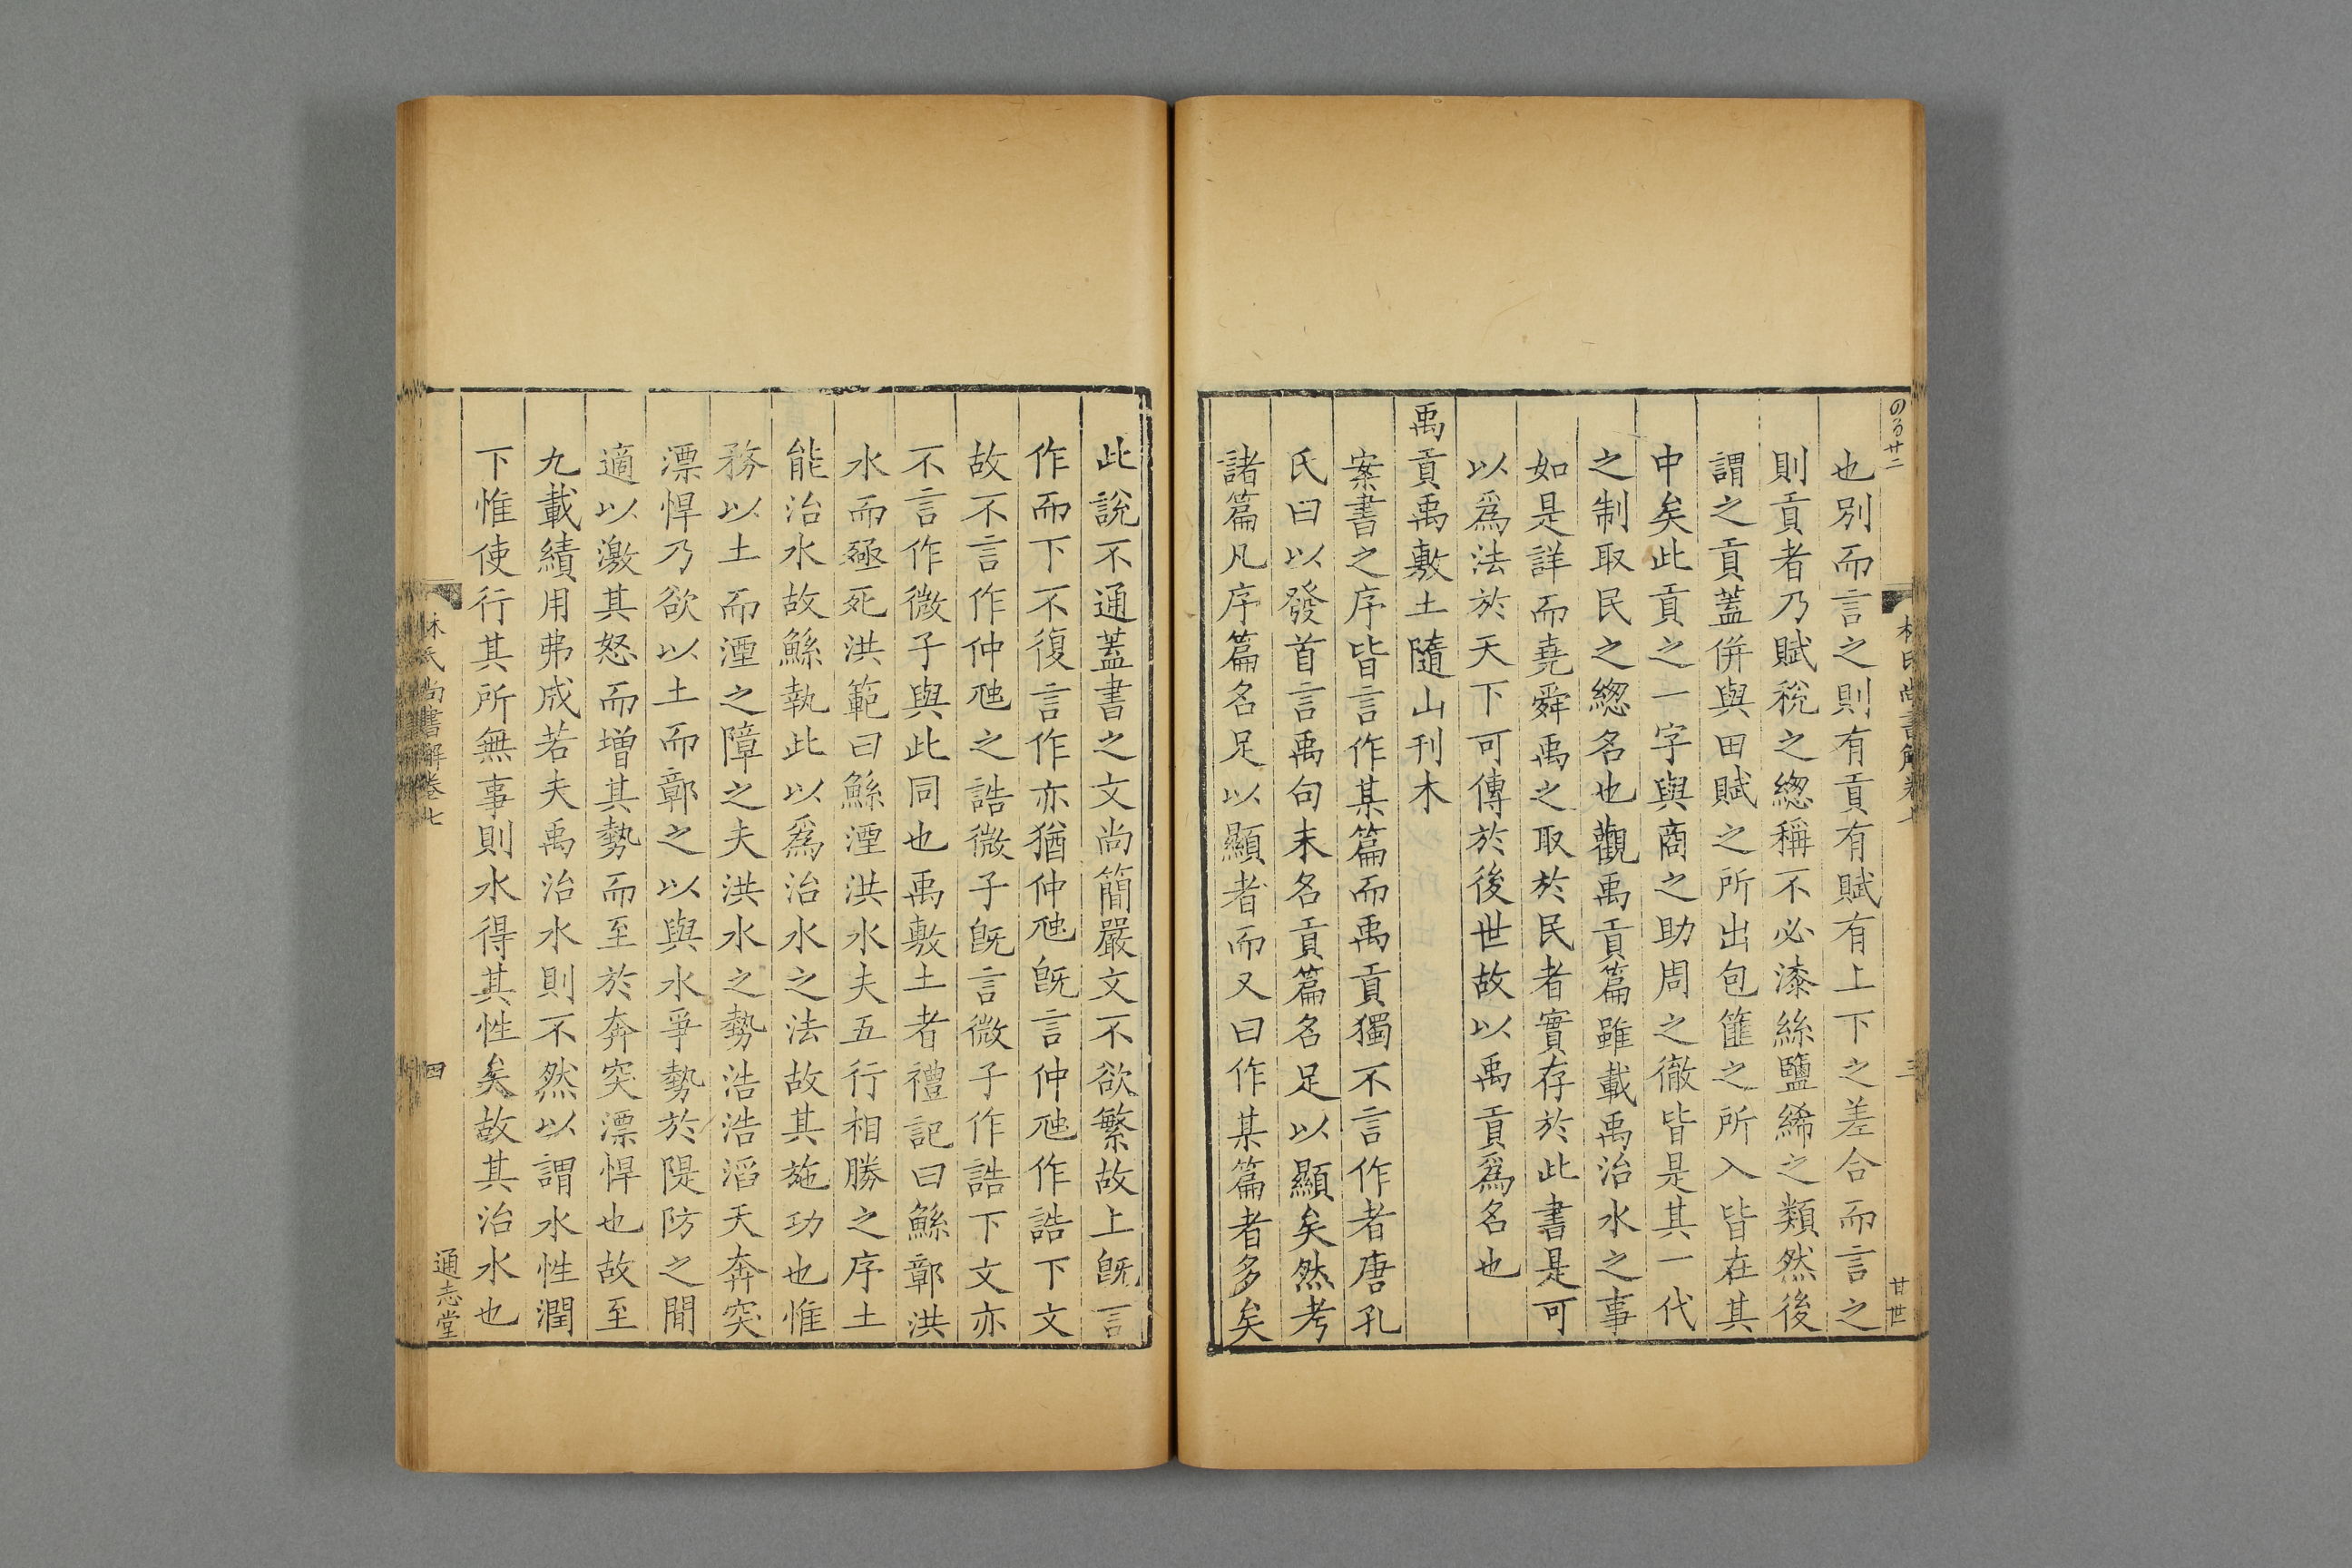 林氏尚書解卷七
三
也別而言之則有貢有賦有上下之差合而言之
則貢者乃賦稅之緫稱不必漆絲鹽絺之類然後
謂之貢蓋併與田賦之所出包篚之所入皆在其
中矣此貢之一字與商之助周之徹皆是其一代
之制取民之緫名也觀禹貢篇雖載禹治水之事
如是詳而堯舜禹之取於民者實存於此書是可
以爲法於天下可傳於後世故以禹貢爲名也
禹貢禹敷土隨山刊木
案書之序皆言作某篇而禹貢獨不言作者唐孔
氏曰以發首言禹句末名貢篇名足以顯矣然考
諸篇凡序篇名足以顯者而又曰作某篇者多矣
此說不通蓋書之文尚簡嚴文不欲繁故上旣言
作而下不復言作亦猶仲虺旣言仲虺作誥下文
故不言作仲虺之誥微子旣言微子作誥下文亦
不言作微子與此同也禹敷土者禮記曰鯀鄣洪
水而殛死洪範曰鯀湮洪水夫五行相勝之序土
能治水故鯀執此以爲治水之法故其施功也惟
務以土而湮之障之夫洪水之勢浩浩滔天奔突
漂悍乃欲以土而鄣之以與水爭勢於隄防之間
適以激其怒而增其勢而至於奔突漂悍也故至
九載績用弗成若夫禹治水則不然以謂水性潤
下惟使行其所無事則水得其性矣故其治水也
林氏尚書解卷七
四
通志堂